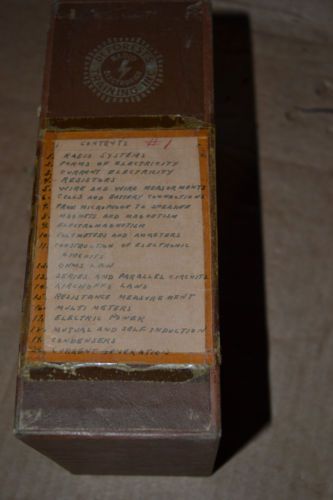 DEFOREST'S
TRAINING, INC.
CONTENTS #1
1. RADIO SYSTEMS
2. FORMS OF ELECTRICITY
3. CURRENT ELECTRICITY
4. RESISTORS
5. WIRE AND WIRE MEASURMENTS
6. CELLS AND BATTERY CONNECTIONS
7. FROM MICROPHONE TO SPEAKER
8. MAGNETS AND MAGNETISM
9. ELECTROMAGNETISM
10. VOLTMETERS AND AMMETERS
11. CONSTRUCTION OF ELECTRONIC
CIRCUITS
12. OHMS LAW
13. SERIES AND PARALLEL CIRCUITS
14. KIRCHOFFS LAWS
15. RESISTANCE MEASUREMENT
16. MULTI METERS
17. ELECTRIC POWER
MUTUAL AND SELF INDUCTION
CONDENSERS
CURRENT GENERATION